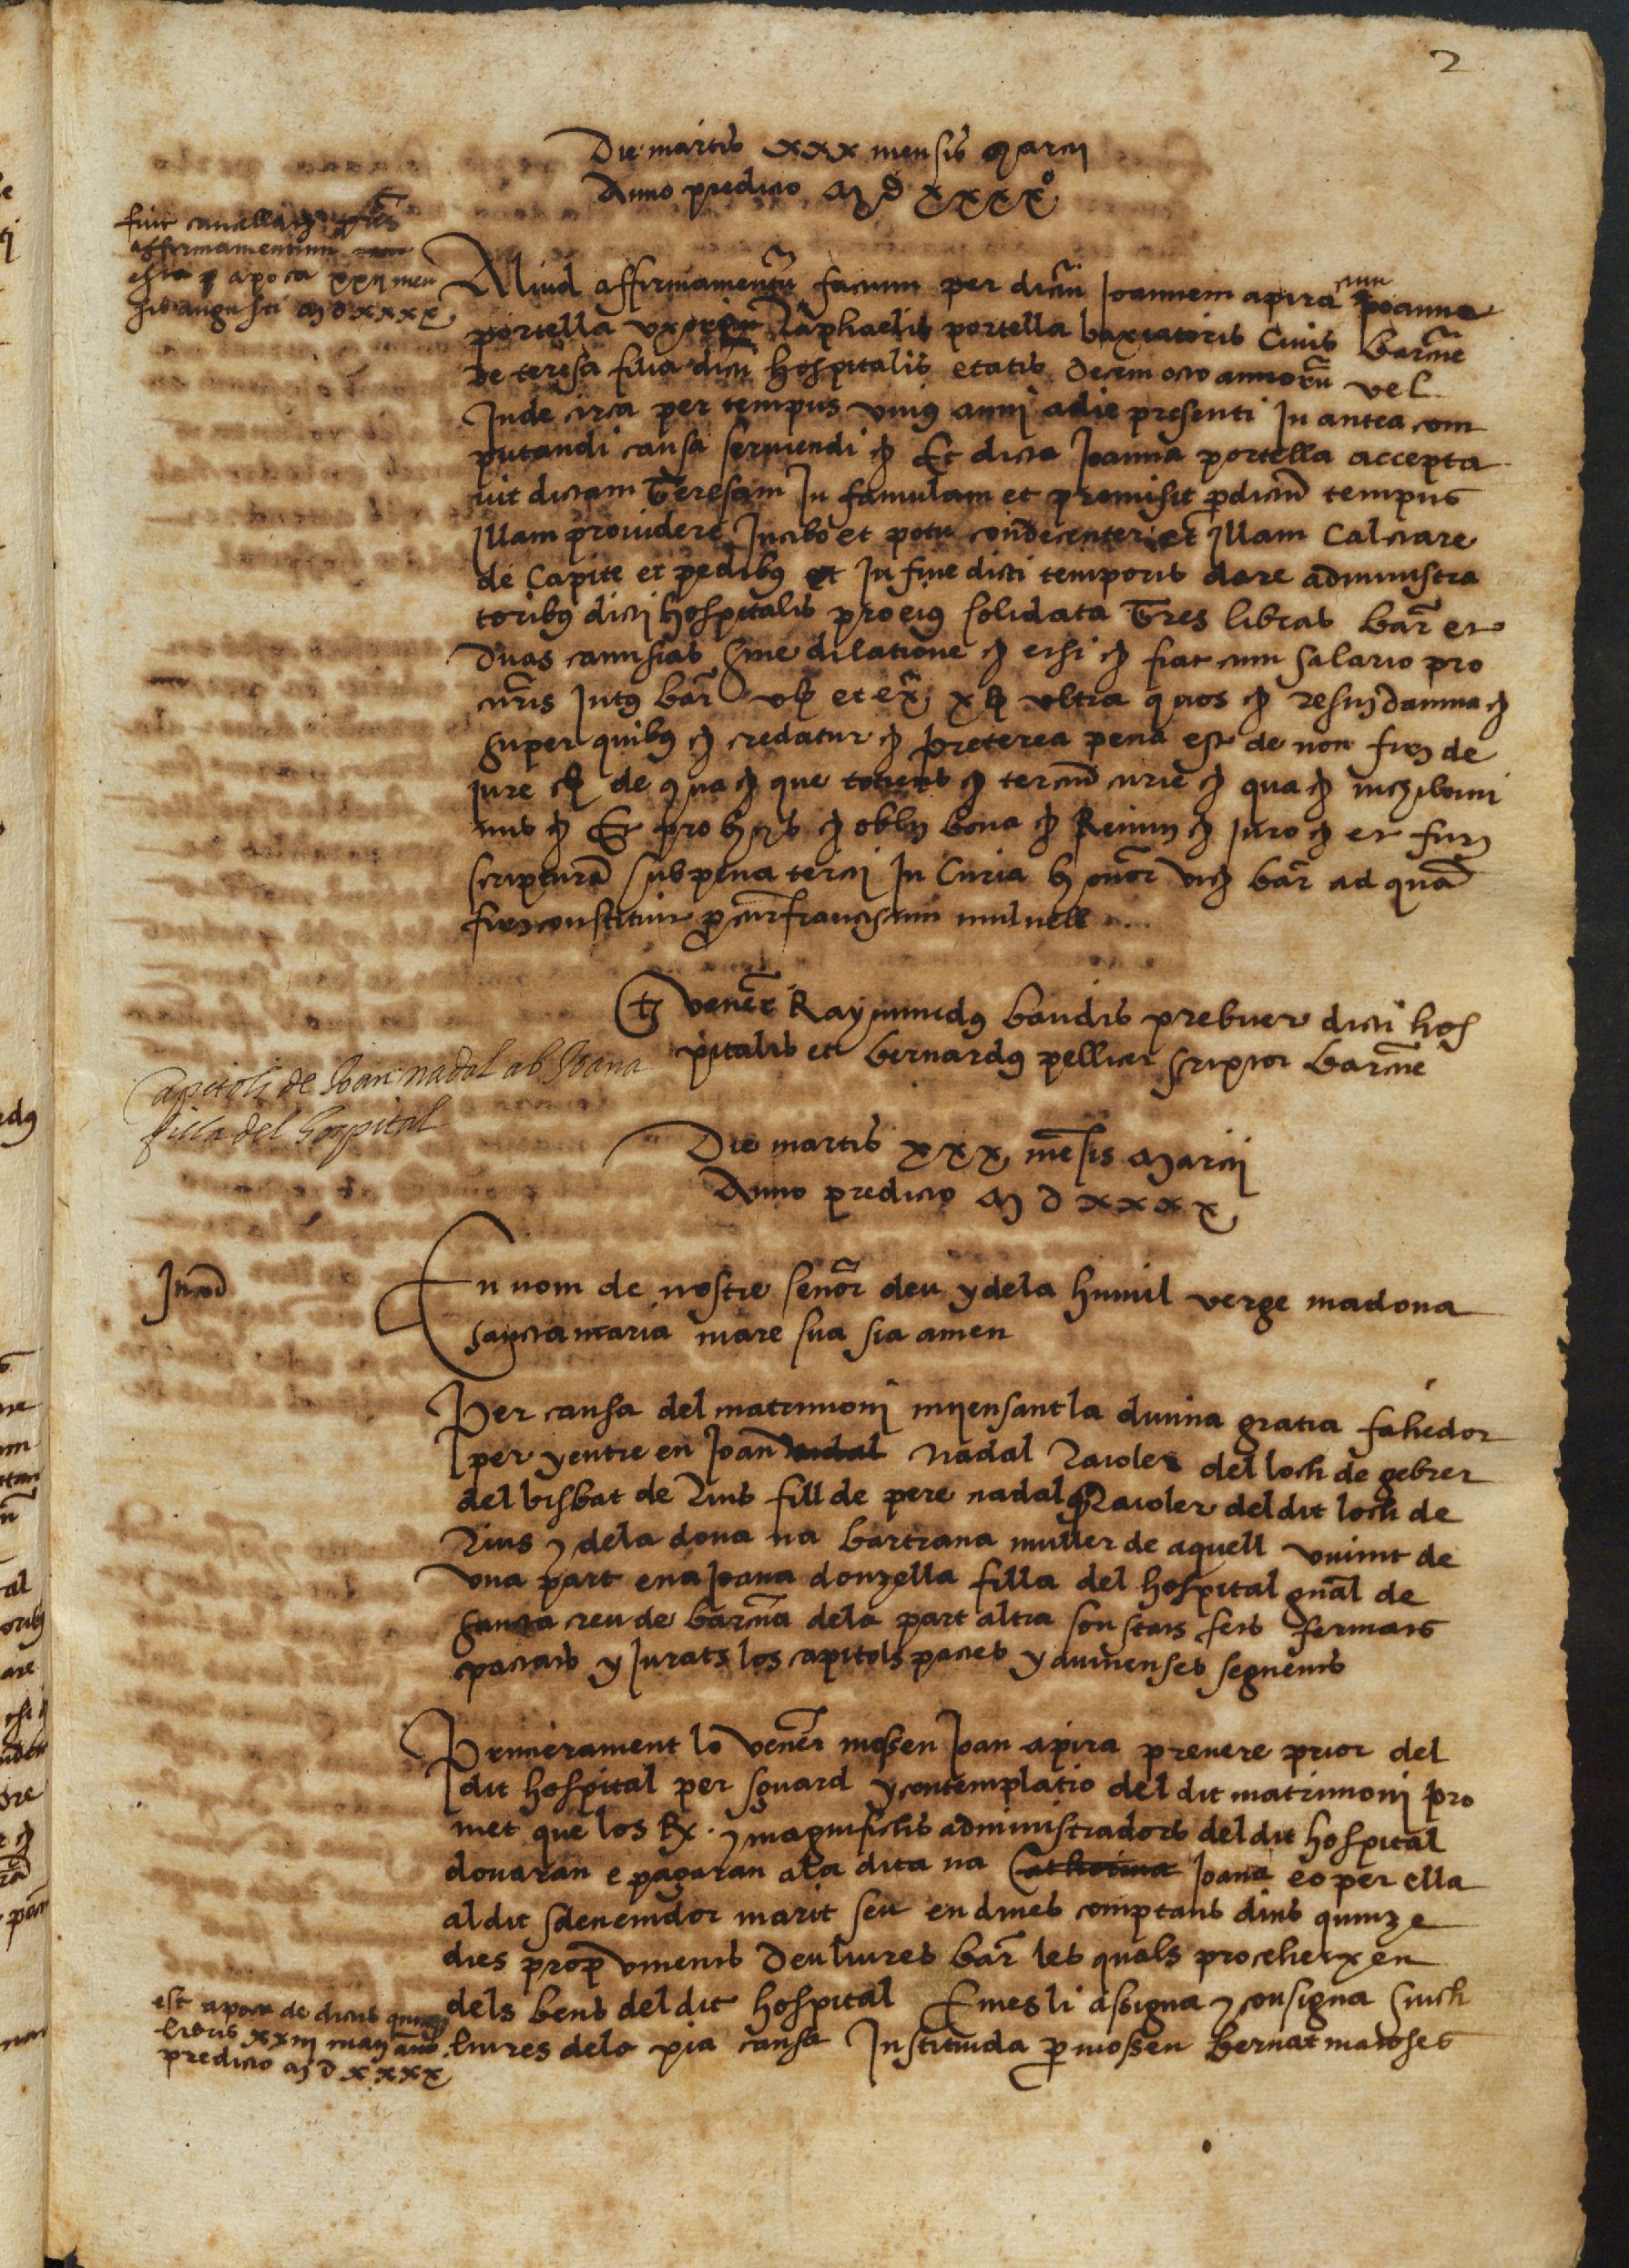 2
Die martis xxx mensis Marcij
Anno predicto M D xxxxº
fuit cancellatum
affirmamentum
apoca xxij men
sis augusti M D xxxx
Aliud affirmamentũ factum per dictũ Joannem apira cum Joanna
portella uxorem Raphaelis portella baxiatoris Civis barcñe
De teresa filia dicti hospitalis etatis decem octo annorũ vel
Inde circa per tempus unius anni a die presenti In antea com
putandi causa serviendi &c Et dicta Joanna portella accepta
vit dictam Teresam In famulam et promisit per dictũ tempus
illam providere In cibo et potu condecenter et illam Calciare
de Capite et pedibus et In fine dicti temporis dare administra
toribus dicti hospitalis pro eius solidata Tres libras bar̃ et
Duas camisias sine dilatione &c etsi &c fiat cum salario pro
cur̃is Intus bar̃ v ß et ex̃ x ß ultra quos &c restituere damna &c
super quibus &c credatur &c preterea pena est de non firm de
jure &c de qua &c que totiens &c terciũ curie &c qua &c
&c Et pro hijs &c oblig bona &c Renun &c juro &c et firm
scripturã sub pena tercij In Curia honor vic bar̃ ad quã
firm constituit procur franciscum mulnell
Ts vener̃ Raymundus baudis prebiter dicti hos
pitalis et bernardus pellicer scriptor barcñe
Capitols de Joan nadal ab Joana
filla del hospital
Die martis xxx mẽsis Marcij
Anno predicto M D xxxx
En nom de nostre señor deu y dela humil verge madona
sancta maria mare sua sia amen
Per causa del matrimonj mijensant la divina gratia fahedor
per y entre en Joan nadal Nadal Raioler del loch de gebrer
del bisbat de Rius fill de pere nadal Raioler del dit loch de
Rius y dela dona na bartrana muller de aquell vivint de
una part e na Joana donzella filla del hospital gñal de
sancta creu de barcña dela part altra son stats fets fermats
pactats y jurats los capitols pactes y avinenses seguents
Primerament lo Vener̃ mossen Joan apira prevere prior del
dit hospital per sguard y contemplatio del dit matrimonj pro
met que los Rx. y magnifichs administradors del dit hospital
donaran e pagaran ala dita na Catherina Joana eo per ella
al dit sdevenidor marit seu en dines comptans dins quinze
dies prop̃ vinents Deu liures bar̃ les quals procehexen
dels bens del dit hospital E mes li assigna y consigna sinch
liures dela pia causa Instituida per mossen bernat
est apoca de dictis quinque
libris xxiij maij anno
predicto M D xxxx